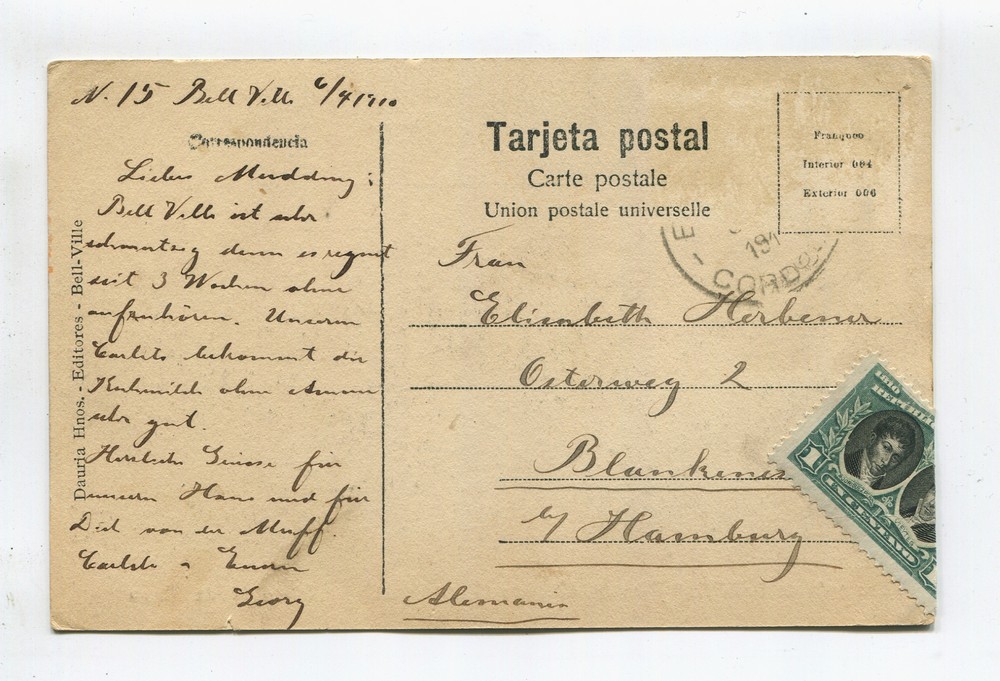 N. 15 Bell Ville 6/4 1910
Correspondencia
Liebes Muddung:
Bell Ville ist sehr
schmutzig denn es regnet
seit 3 Wochen ohne
aufzuhören. Unserm
Carlito bekommt die
Kuhmilch ohne Amme
sehr gut.
Herzliche Grüsse für
unsern Hans und für
Dich von der Muff.
Carlito u Euern
Georg
Dauria Hnos. - Editores - Bell-Ville
Tarjeta postal
Carte postale
Union postale universelle
Franqueo
Interior 004
Exterior 006
E
191
CORDO
Frau
Elisabeth Herbener
Osterweg 2
Blankenes
b/ Hamburg
Alemania
1810
1
UN CENTAVO
1